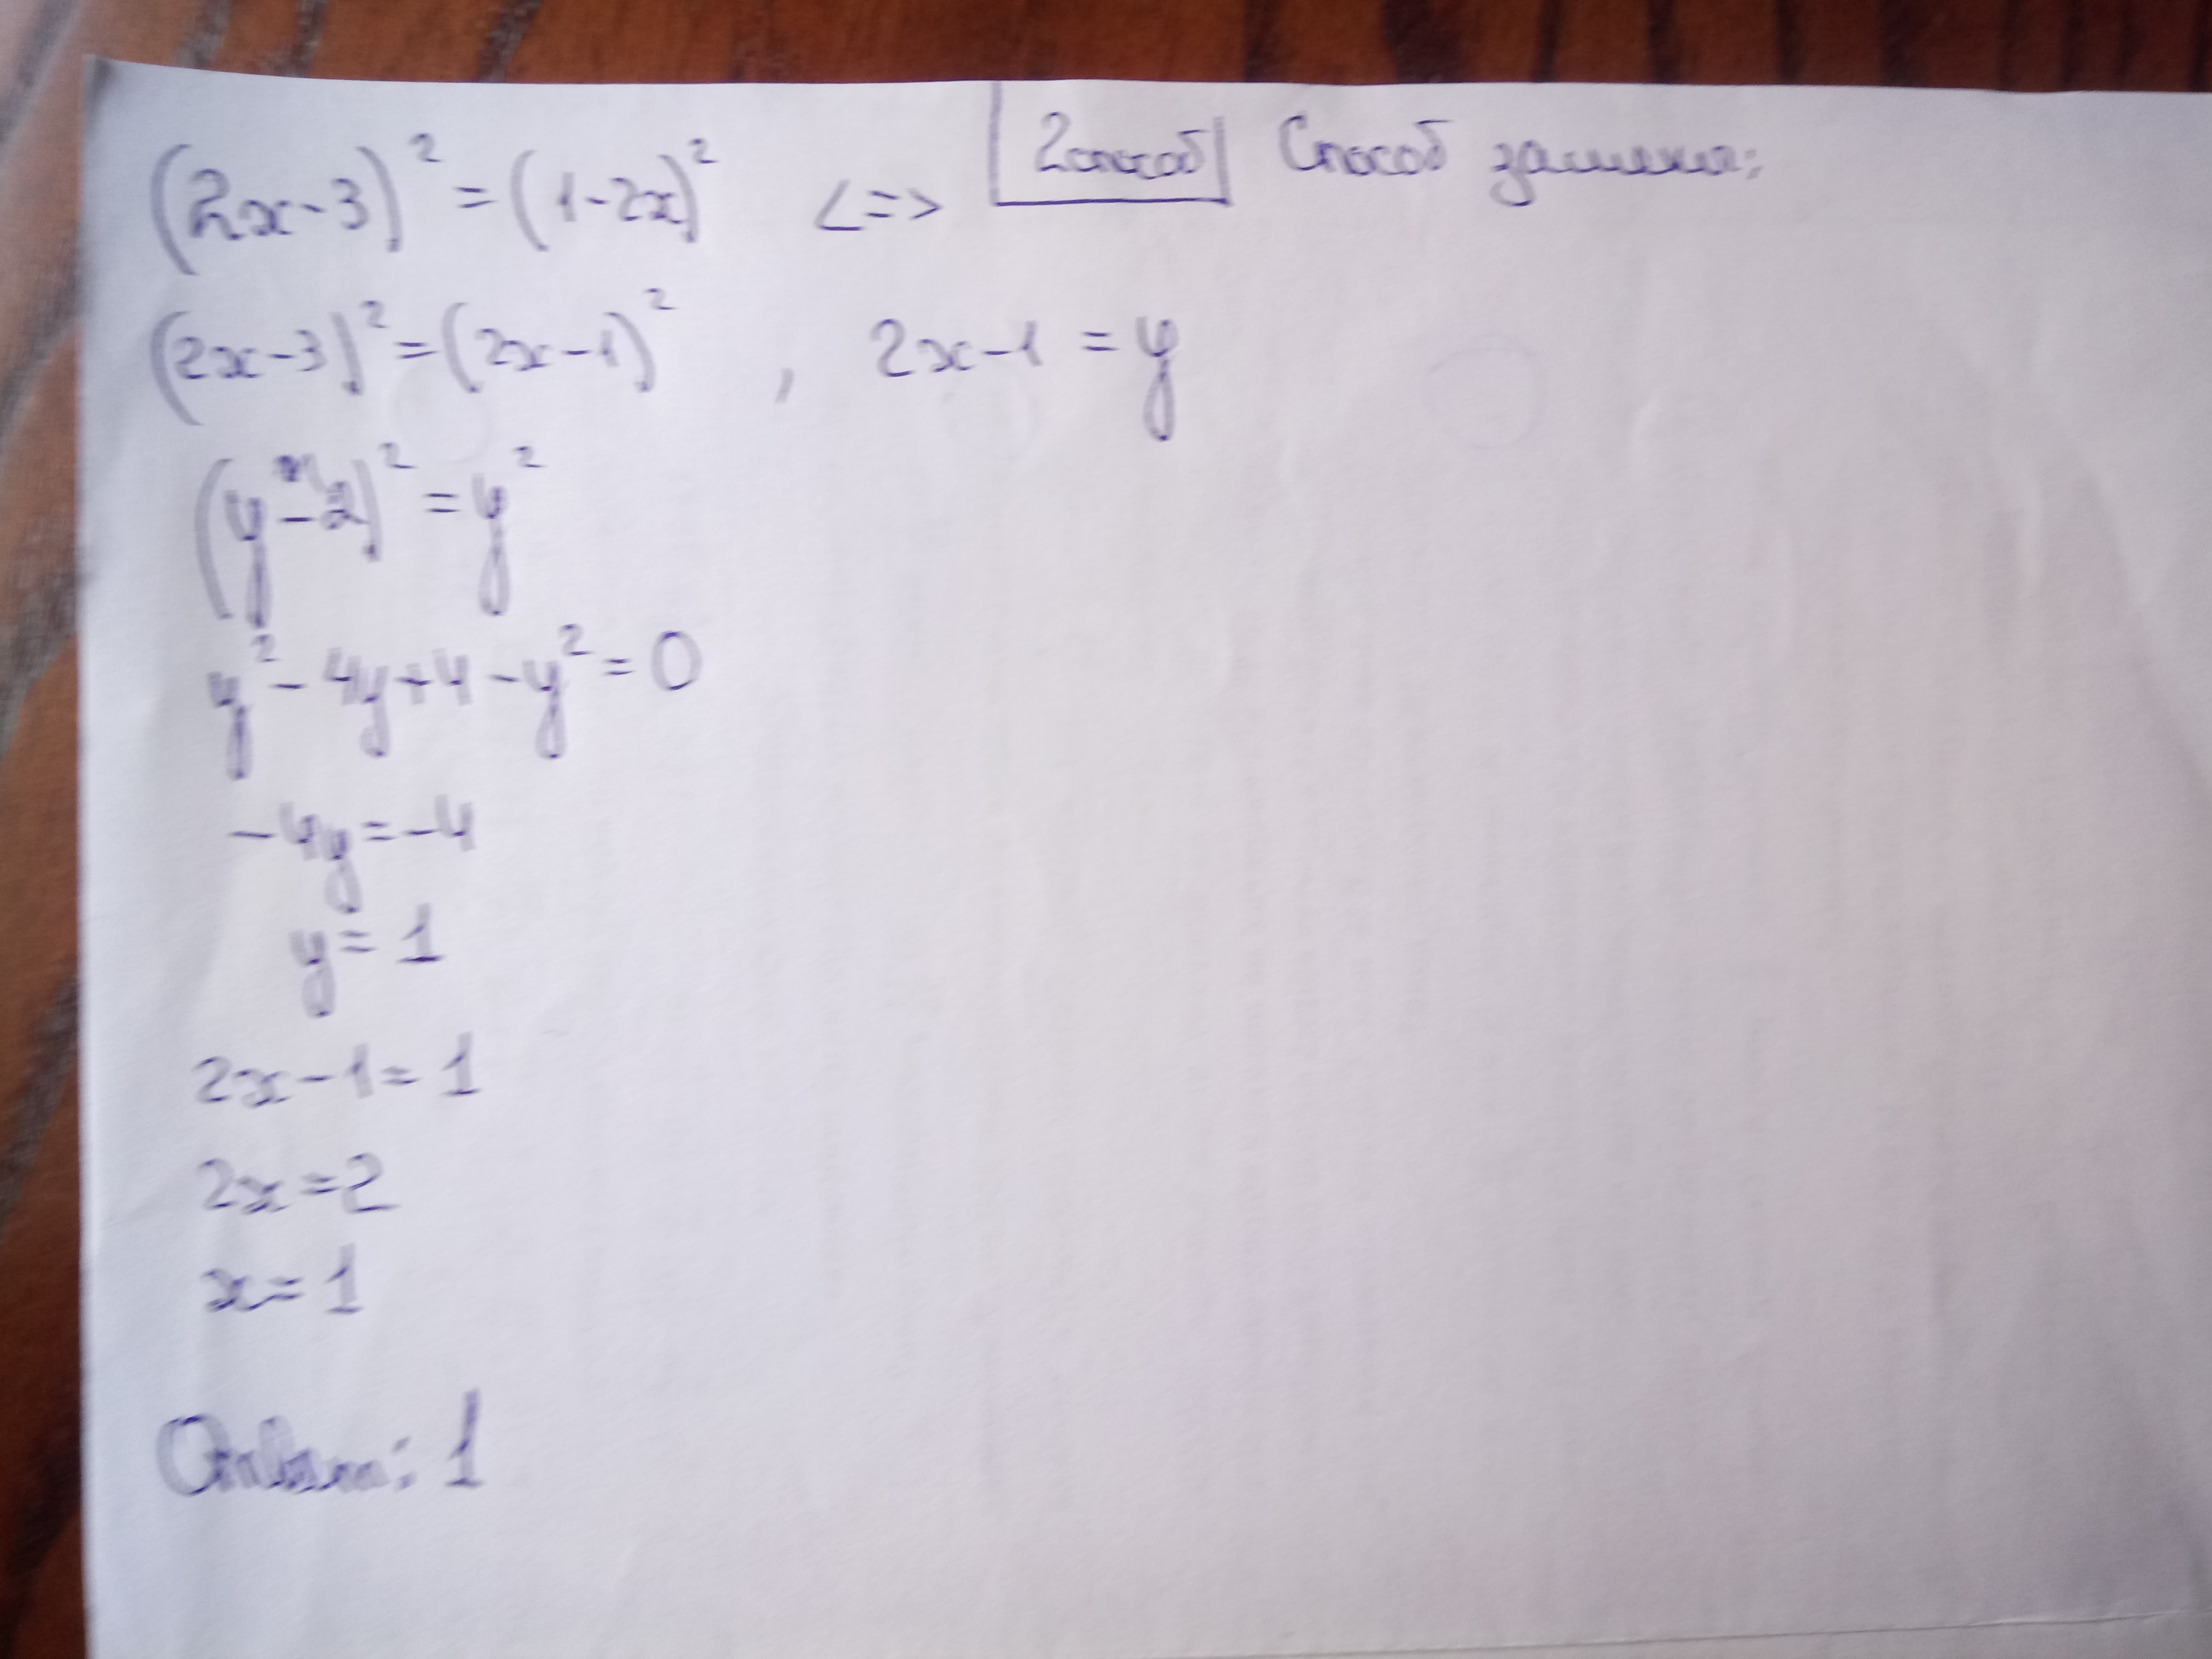 (2x-3)² = (1-2x)² <=> 2 способ Способ замены:
(2x-3)² = (2x-1)² , 2x-1 = y
(y-2)² = y²
y² - 4y + 4 - y² = 0
-4y = -4
y = 1
2x - 1 = 1
2x = 2
x = 1
Ответ: 1